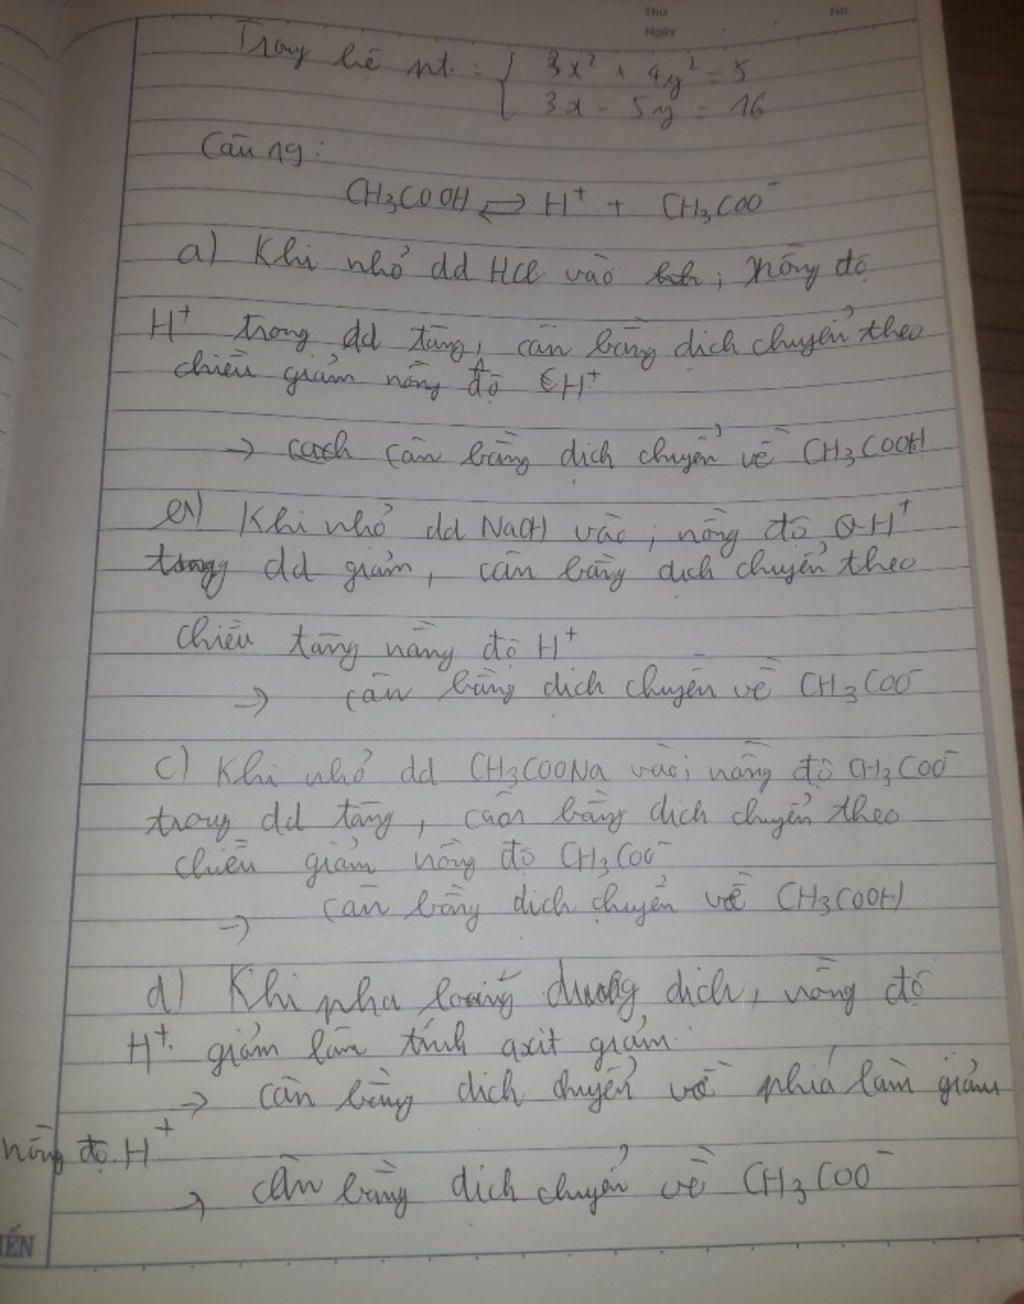 Thứ
Ngày
No.
Trong hệ pt : { 3x² + 4y² = 5
3x - 5y = 16
Câu 19:
CH₃COOH ⇌ H⁺ + CH₃COO⁻
a) Khi nhỏ dd HCl vào ; nồng độ
H⁺ trong dd tăng, cân bằng dịch chuyển theo
chiều giảm nồng độ H⁺
→ cân bằng dịch chuyển về CH₃COOH
b) Khi nhỏ dd NaOH vào ; nồng độ H⁺
trong dd giảm, cân bằng dịch chuyển theo
chiều tăng nồng độ H⁺
→ cân bằng dịch chuyển về CH₃COO⁻
c) Khi nhỏ dd CH₃COONa vào; nồng độ CH₃COO⁻
trong dd tăng, cân bằng dịch chuyển theo
chiều giảm nồng độ CH₃COO⁻
→ cân bằng dịch chuyển về CH₃COOH
d) Khi pha loãng dung dịch, nồng độ
H⁺ giảm làm tính axit giảm.
→ cân bằng dịch chuyển về phía làm giảm
nồng độ H⁺
→ cân bằng dịch chuyển về CH₃COO⁻
IẾN